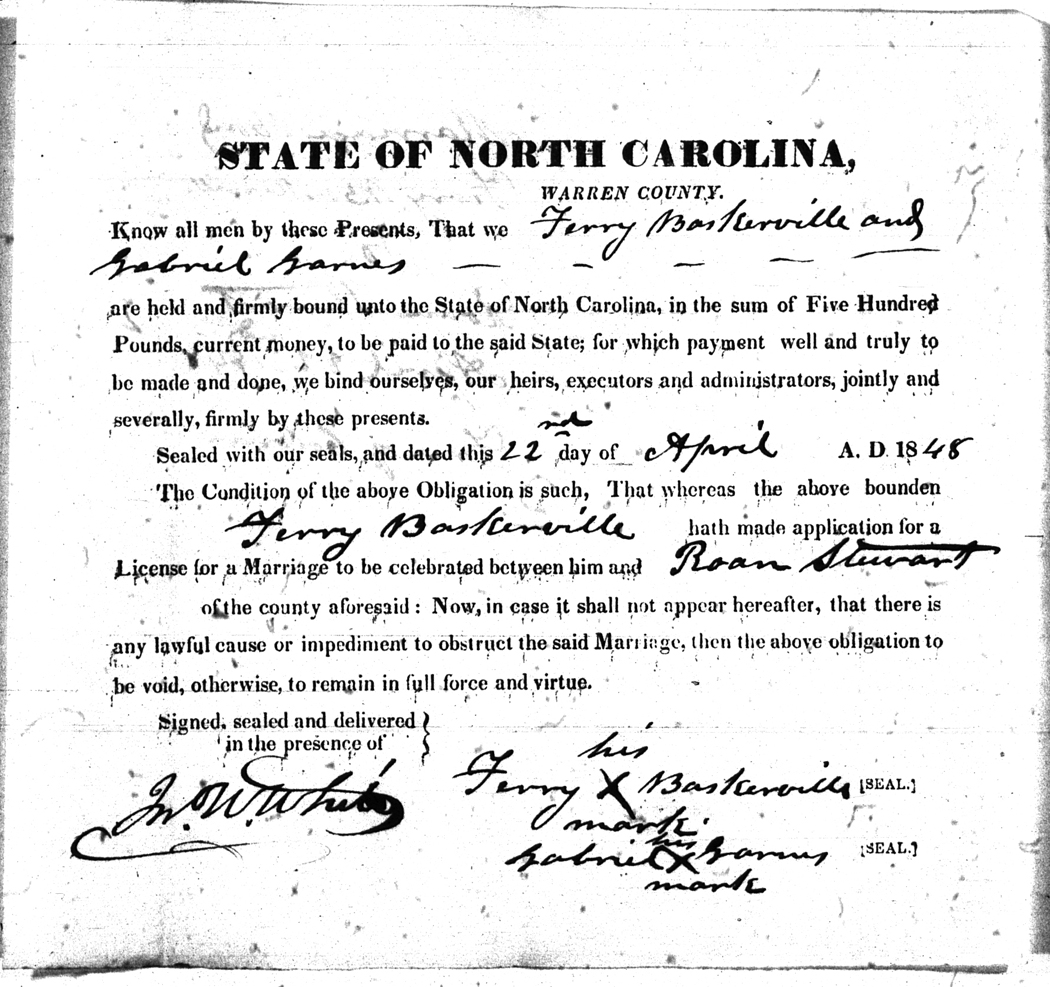 STATE OF NORTH CAROLINA,
WARREN COUNTY.
Know all men by these Presents, That we Ferry Baskerville and
Gabriel Garnes — — — — —
are held and firmly bound unto the State of North Carolina, in the sum of Five Hundred
Pounds, current money, to be paid to the said State; for which payment well and truly to
be made and done, we bind ourselves, our heirs, executors and administrators, jointly and
severally, firmly by these presents.
Sealed with our seals, and dated this 22nd day of April A. D. 1848
The Condition of the above Obligation is such, That whereas the above bounden
Ferry Baskerville hath made application for a
License for a Marriage to be celebrated between him and Roan Stewart
of the county aforesaid: Now, in case it shall not appear hereafter, that there is
any lawful cause or impediment to obstruct the said Marriage, then the above obligation to
be void, otherwise, to remain in full force and virtue.
Signed, sealed and delivered
in the presence of
his
Jno. W. White Ferry X Baskerville [SEAL.]
mark.
his
Gabriel X Garnes [SEAL.]
mark